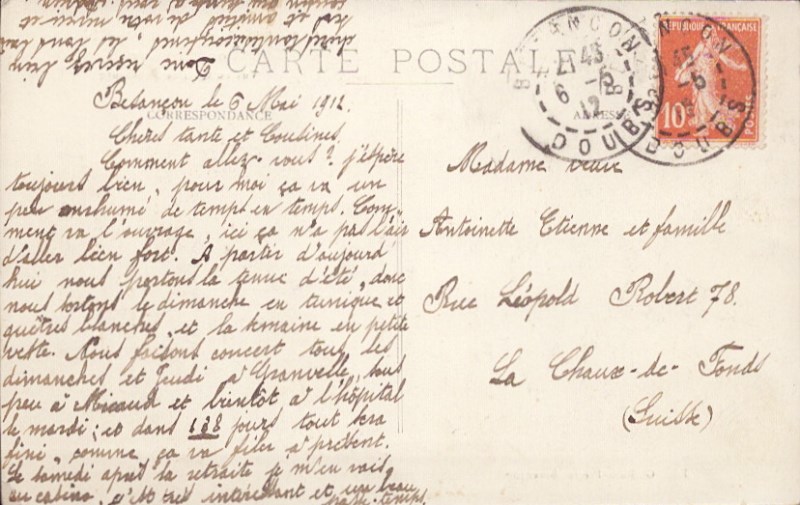 CARTE POSTALE
CORRESPONDANCE
ADRESSE
RÉPUBLIQUE FRANÇAISE
10c
BESANÇON
DOUBS
Besançon le 6 Mai 1912.
Chères tante et Cousines.
Comment allez-vous? j'espère
toujours bien, pour moi ça va un
peu enrhumé de temps en temps. Com-
ment va l'ouvrage, ici ça n'a pas l'air
d'aller bien fort. A partir d'aujourd'
hui nous portons la tenue d'été, donc
nous sortons le dimanche en tunique et
guêtres blanches, et la semaine en petite
veste. Nous faisons concert tous les
dimanches et Jeudi à Granvelle, sous
peu à Micaud et bientôt à l'hôpital
le mardi; et dans 138 jours tout sera
fini, comme ça va filer à présent.
Le samedi après la retraite je m'en vais
au casino, c'est très intéressant et un beau
passe-temps.
Donc recevez bien
Madame veuve
Antoinette Etienne et famille
Rue Léopold Robert 78.
La Chaux-de-Fonds
(Suisse)